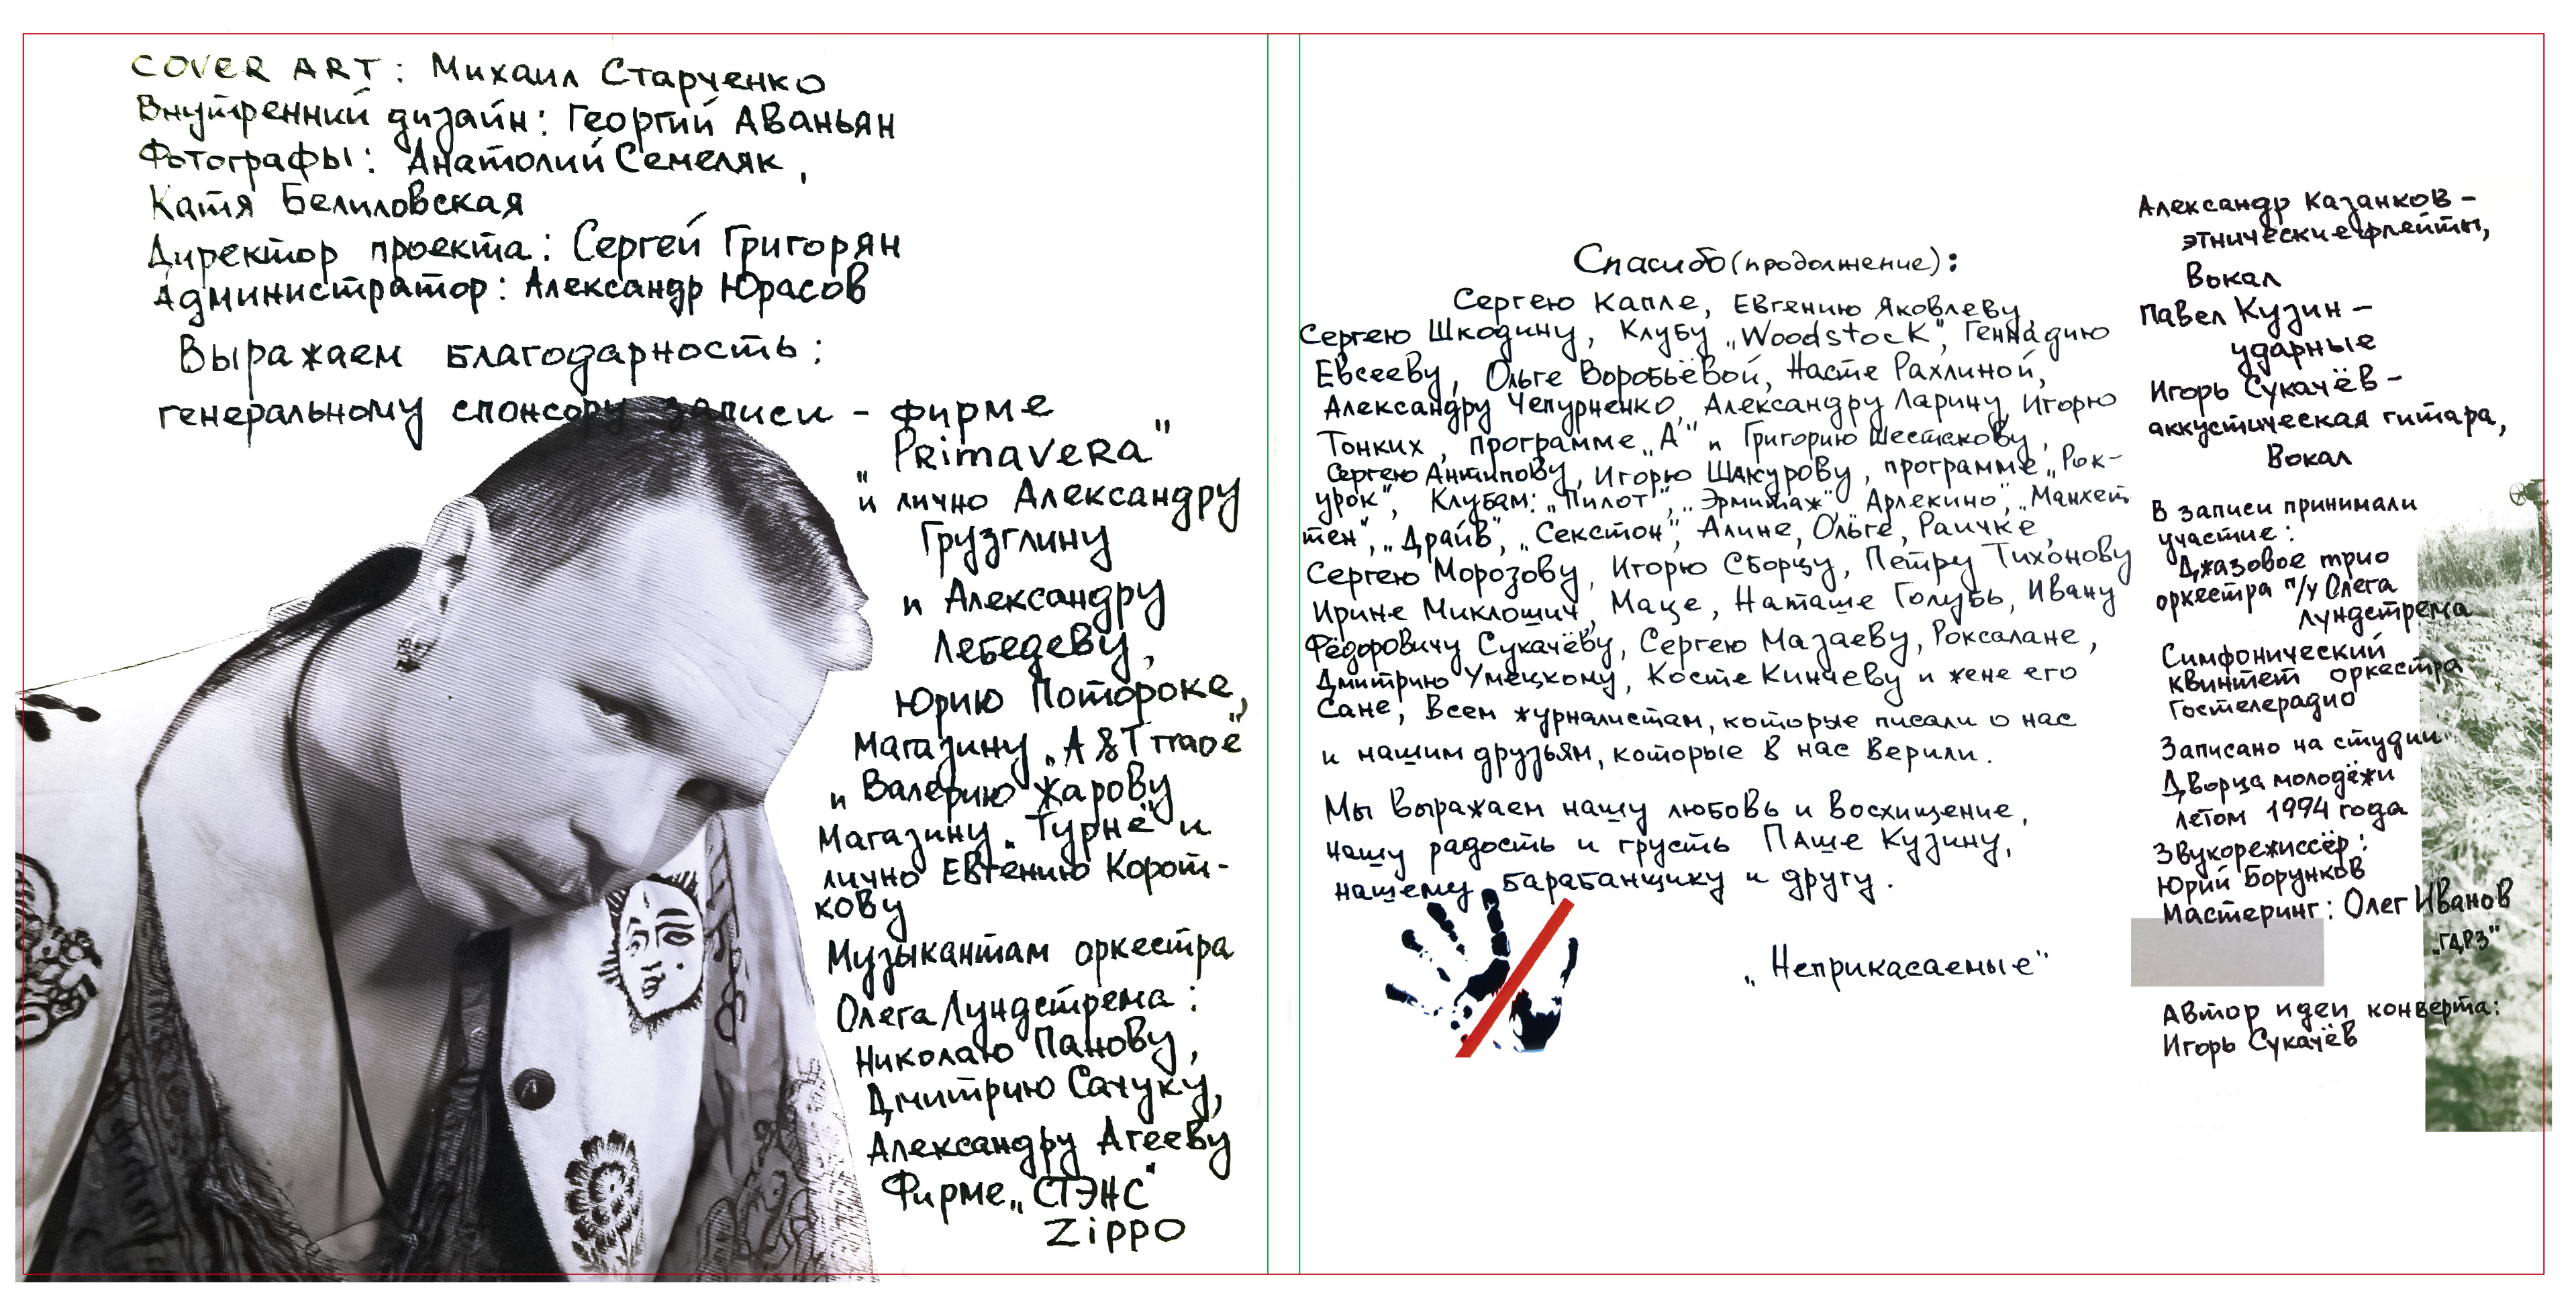 COVER ART: Михаил Старченко
Внутренний дизайн: Георгий Аваньян
Фотографы: Анатолий Семеляк,
Катя Белиловская
Директор проекта: Сергей Григорян
Администратор: Александр Юрасов
Выражаем благодарность:
генеральному спонсору записи - фирме
„Primavera"
и лично Александру
Грузглину
и Александру
Лебедеву,
Юрию Потороке,
магазину „A&T trade"
и Валерию Жарову
Магазину „Турне" и
лично Евгению Корот-
кову
Музыкантам оркестра
Олега Лундстрема:
Николаю Панову,
Дмитрию Сачуку,
Александру Агееву
Фирме „СТЭНС"
Zippo
Спасибо (продолжение):
Сергею Капле, Евгению Яковлеву,
Сергею Шкодину, Клубу „Woodstock", Геннадию
Евсееву, Ольге Воробьёвой, Насте Рахлиной,
Александру Чепурненко, Александру Ларину, Игорю
Тонких, программе „А" и Григорию Шестакову,
Сергею Антипову, Игорю Шакурову, программе „Рок-
урок", Клубам: „Пилот", „Эрмитаж", Арлекино", „Манхет
тен", „Драйв", „Секстон", Алине, Ольге, Раичке,
Сергею Морозову, Игорю Сборцу, Петру Тихонову
Ирине Миклошич, Маце, Наташе Голубь, Ивану
Фёдоровичу Сукачёву, Сергею Мазаеву, Роксалане,
Дмитрию Умецкому, Косте Кинчеву и жене его
Сане, Всем журналистам, которые писали о нас
и нашим друзьям, которые в нас верили.
Мы выражаем нашу любовь и восхищение,
нашу радость и грусть Паше Кузину,
нашему барабанщику и другу.
„Неприкасаемые"
Александр Казанков -
этнические флейты,
вокал
Павел Кузин -
ударные
Игорь Сукачёв -
аккустическая гитара,
вокал
В записи принимали
участие:
Джазовое трио
оркестра п/у Олега
Лундстрема
Симфонический
квинтет оркестра
Гостелерадио
Записано на студии
Дворца молодёжи
летом 1994 года
Звукорежиссёр:
Юрий Борунков
Мастеринг: Олег Иванов
„ГДРЗ"
Автор идеи конверта:
Игорь Сукачёв